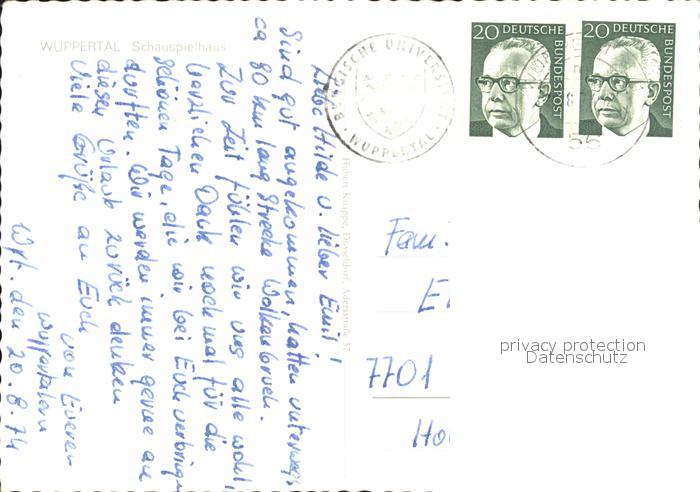 WUPPERTAL Schauspielhaus
Liebe Hilde u. lieber Emil!
Sind gut angekommen, hatten unterwegs
ca 80 km lang Strecke Wolkenbruch.
Zur Zeit fühlen wir uns alle wohl,
herzlichen Dank nochmal für die
schönen Tage, die wir bei Euch verbringen
durften. Wir werden immer gerne an
diesen Urlaub zurück denken
Viele Grüße an Euch
von Eueren
Wuppertalern
Wpt. den 20.8.74
Huben Knippe, Düsseldorf, Adersstraße 57
BERGISCHE UNIVERSITÄT
WUPPERTAL
20 DEUTSCHE
BUNDESPOST
20 DEUTSCHE
BUNDESPOST
56
Fam.
7701
privacy protection
Datenschutz